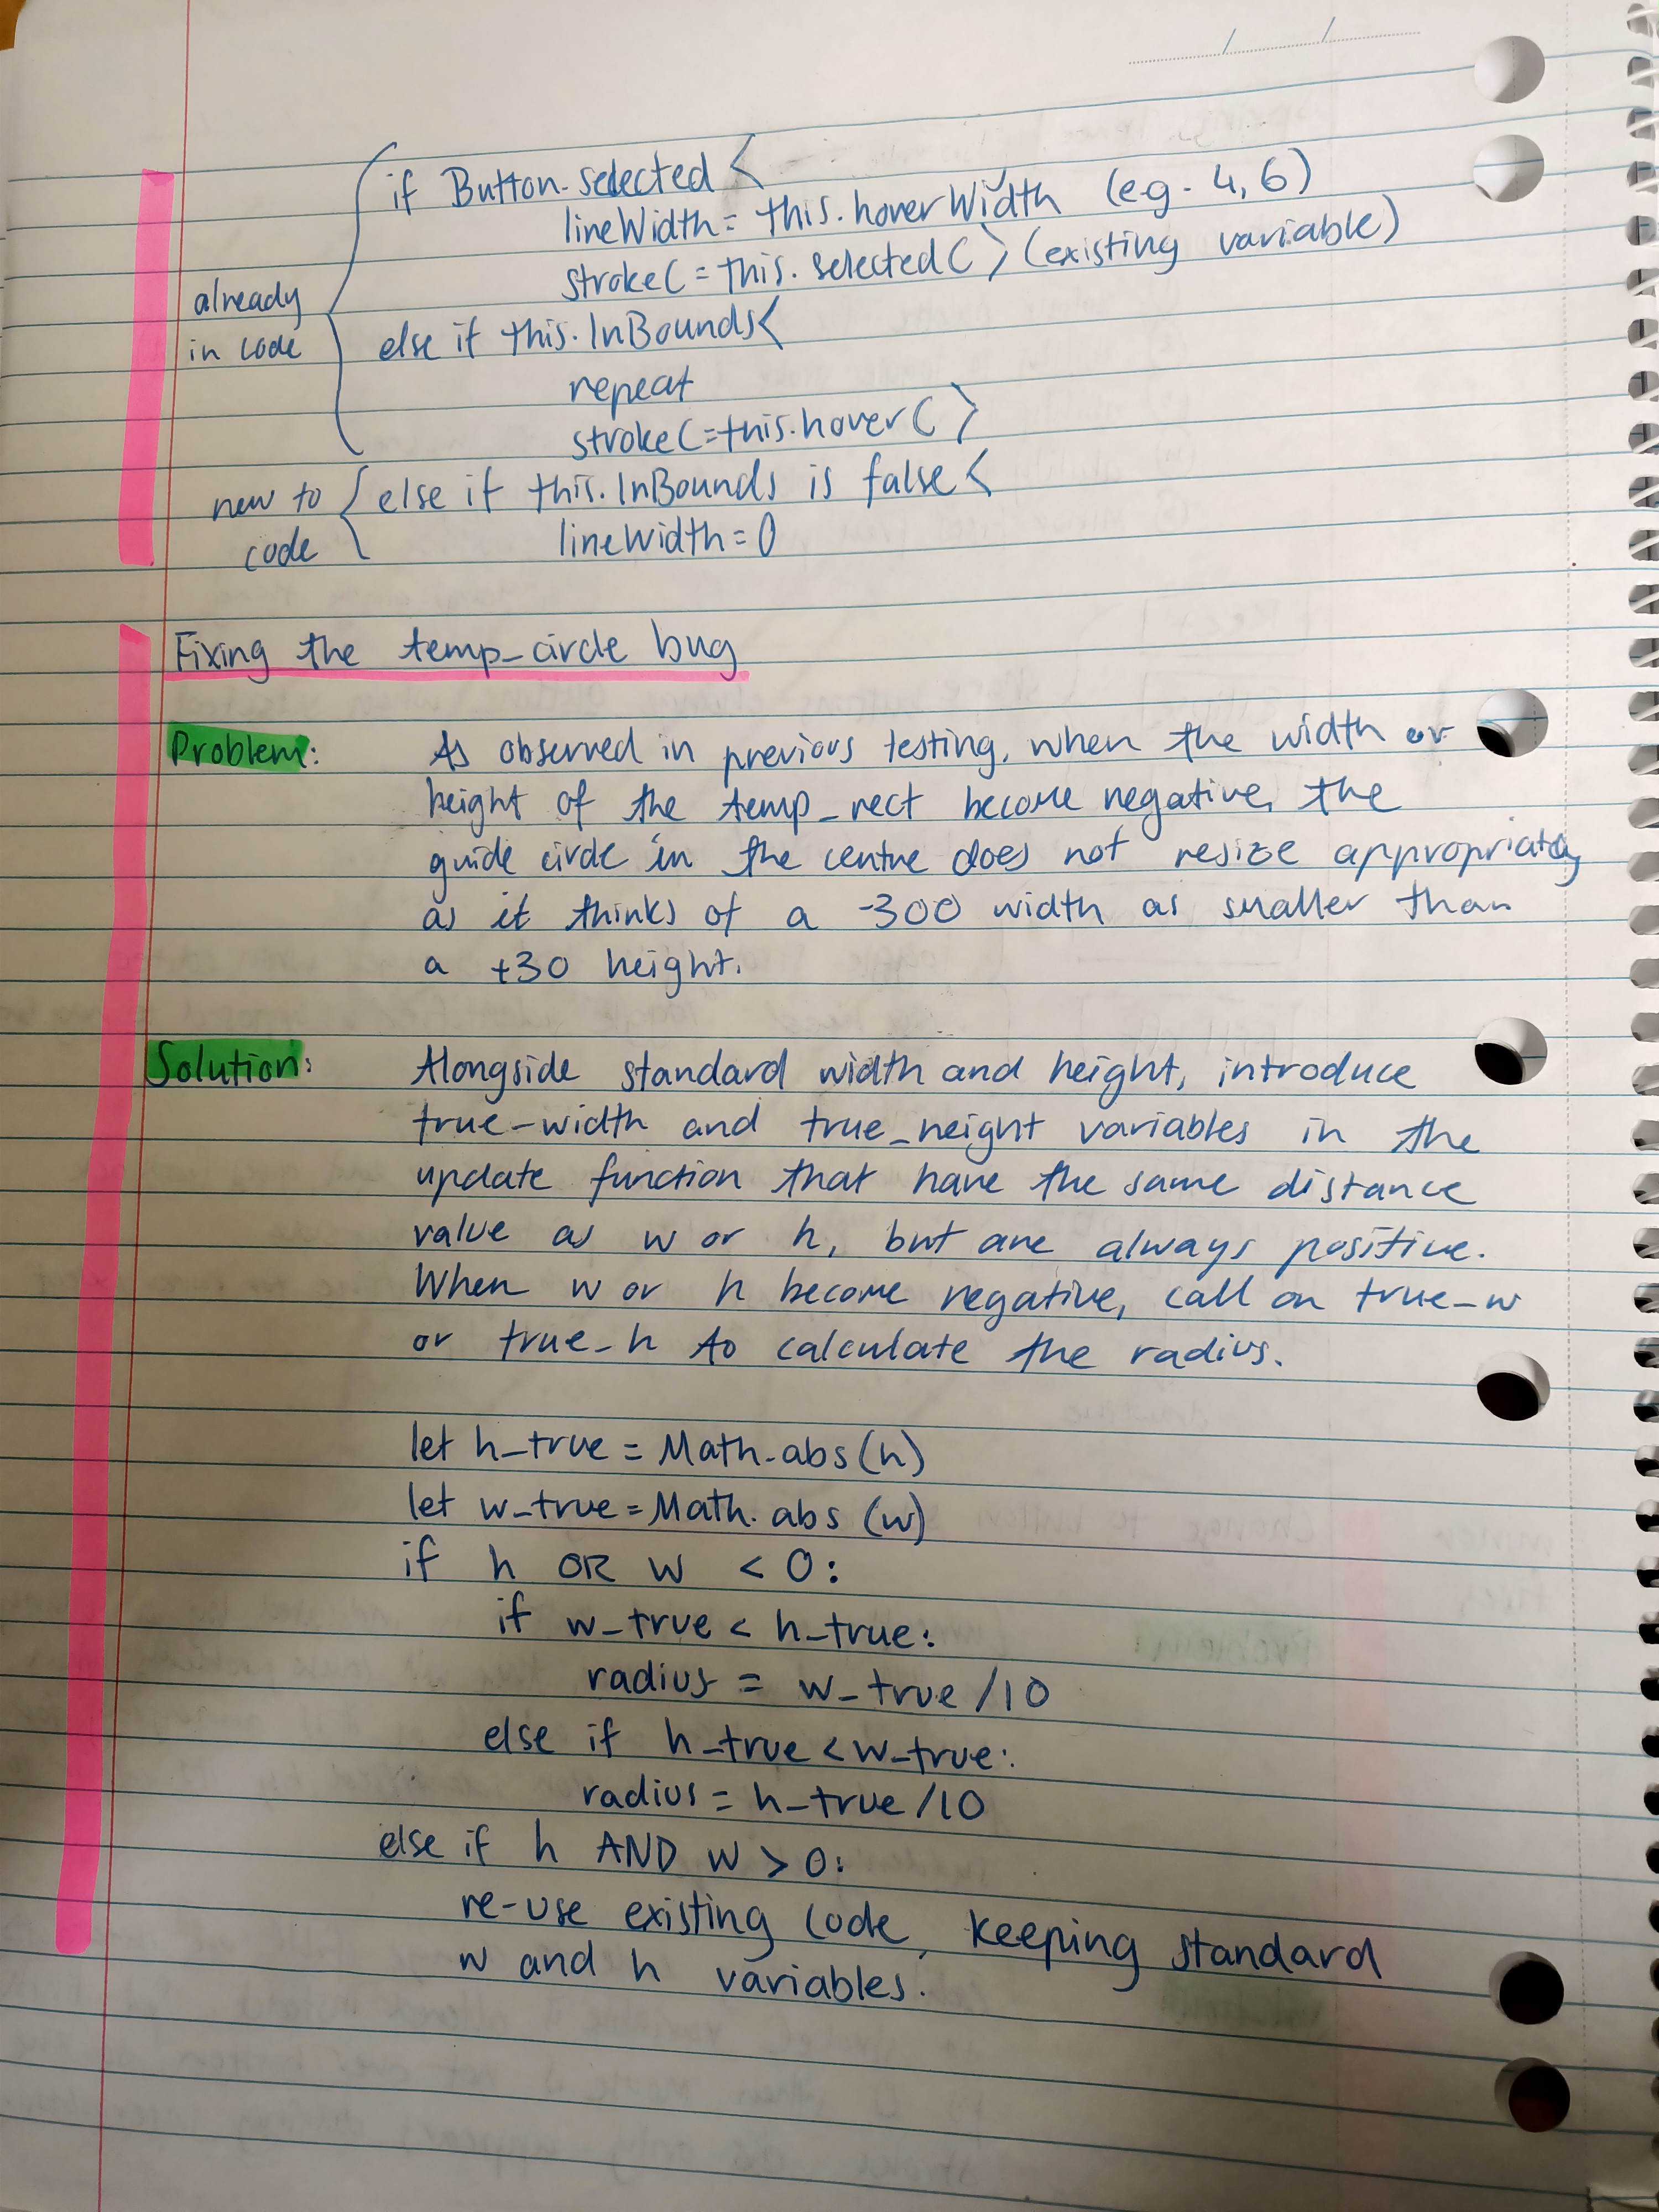 if Button.selected <
lineWidth = this.hoverWidth (e.g. 4, 6)
strokeC = this.selectedC > (existing variable)
already
in code
else if this.InBounds <
repeat
strokeC = this.hoverC >
new to
code
else if this.InBounds is false <
lineWidth = 0
Fixing the temp_circle bug
Problem: As observed in previous testing, when the width or
height of the temp_rect become negative, the
guide circle in the centre does not resize appropriately
as it thinks of a -300 width as smaller than
a +30 height.
Solution: Alongside standard width and height, introduce
true_width and true_height variables in the
update function that have the same distance
value as w or h, but are always positive.
When w or h become negative, call on true_w
or true_h to calculate the radius.
let h_true = Math.abs(h)
let w_true = Math.abs (w)
if h OR w < 0:
if w_true < h_true:
radius = w_true /10
else if h_true < w_true:
radius = h_true /10
else if h AND w > 0:
re-use existing code, keeping standard
w and h variables.